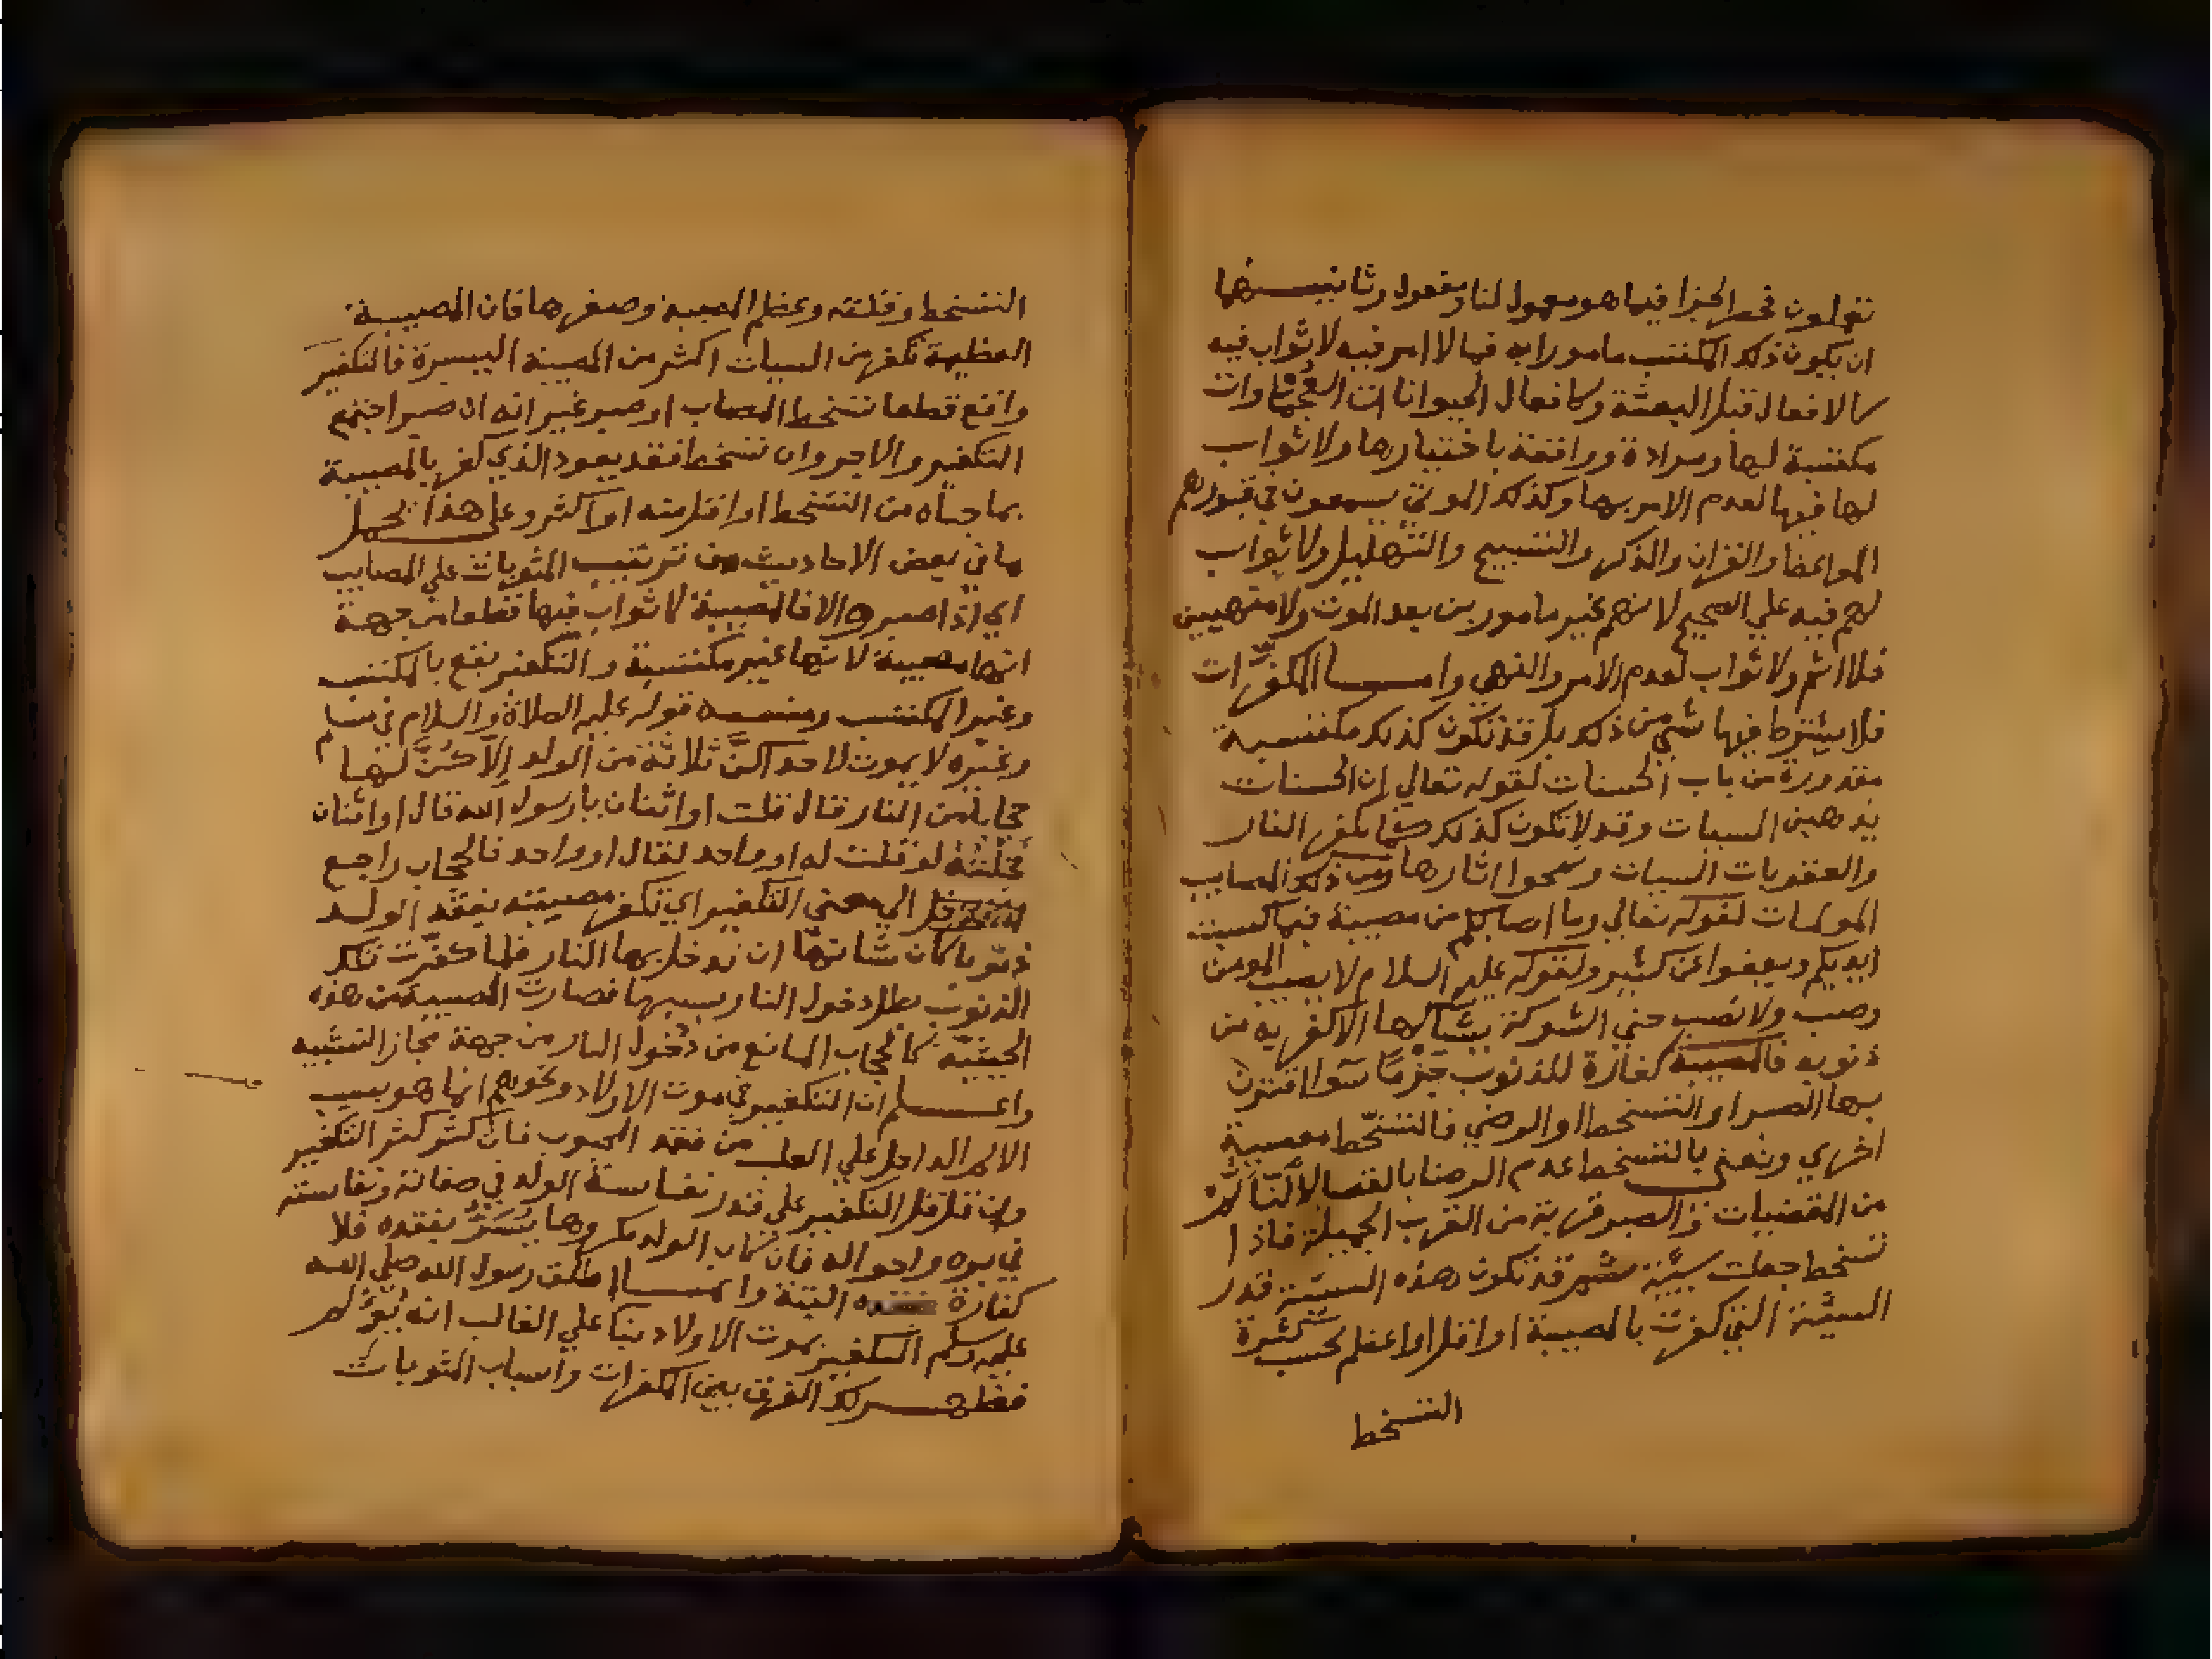 تعملون فحصر الجزا فيما هو معمول لنا ومفعول وثانيـــها
ان يكون ذلك المكتسب مامورا به فما لا امر فيه لا ثواب فيه
كالافعال قبل البعثة وكافعال الحيوانات العجماوات
مكتسبة لها ومرادة وواقعة باختيارها ولا ثواب
لها فيها لعدم الامر بها وكذلك الموتي يسمعون في قبورهم
المواعظ والقران والذكر والتسبيح والتهليل ولا ثواب
لهم فيه علي الصحيح لانهم غير مامورين بعد الموت ولا منهيين
فلا اثم ولا ثواب لعدم الامر والنهي وامـــا المكفرات
فلا يشترط فيها شي من ذلك بل قد تكون كذلك مكتسبة
مقدورة من باب الحسنات لقوله تعالي ان الحسنات
يذهبن السيات وقد لا تكون كذلك كما يكفر النار
والعقوبات السيات وتمحوا اثارها ومن ذلك المصايب
المولمات لقوله تعالي وما اصابكم من مصيبة فبما كسبت
ايديكم ويعفوا عن كثير ولقوله عليه السلام لا يصيب المومن
وصب ولا نصب حتي الشوكة يشاكها الا كفر به من
ذنوبه فالمصيبة كفارة للذنوب جزما سوا اقترن
بها الصبر او التسخط او الرضي فالتسخط معصية
اخري ونعني بالتسخط عدم الرضا بالقضا لا التألم
من المقضيات والصبر قربة من القرب الجميلة فاذا
تسخط جعلت سيّئة ثم قد تكون هذه السيئة قدر
السيئة التي كفرت بالمصيبة او اقل او اعظم بحسب كثرة
التسخط
التسخط وقلته وعظم المصيبة وصغرها فان المصيبة
العظيمة تكفر من السيات اكثر من المصيبة اليسيرة فالتكفير
واقع قطعا تسخط المصاب او صبر غير انه ان صبر اجتمع
التكفير والاجر وان تسخط فقد يعود الذي كفر بالمصيبة
بما جناه من التسخط او اقل منه او اكثر وعلي هذا يحمل
ما في بعض الاحاديث من ترتيب المثوبات علي المصايب
اي اذا صبر والا فالمصيبة لا ثواب فيها قطعا من جهة
انها مصيبة لانها غير مكتسبة والتكفير يقع بالمكتسب
وغير المكتسب ومنـــه قوله عليه الصلاة والسلام في مسلم
وغيره لا يموت لاحداكنّ ثلاثة من الولد إلا كنّ لها
حجابا من النار قال قلت او اثنان يا رسول الله قال او اثنان
لو قلت له او واحد لقال او واحد فالحجاب راجع
الي معني التكفير اي تكفر مصيبته بفقد الولد
ذنوبا كان شانها ان يدخل بها النار فلما كفّرت تلك
الذنوب بطل دخول النار بسببها فصارت المصيبة من هذه
الحيثيّة كالحجاب المانع من دخول النار من جهة مجاز التشبيه
واعـــلم ان التكفير في موت الاولاد ونحوهم انما هو بسبب
الالم الداخل علي القلب من فقد المحبوب فان كثر كثر التكفير
وان قل قل التكفير علي قدر نفاسة الولد في صفاته ونفاسته
في بره واحواله فان كان الولد مكروها يُسَرُّ بفقده فلا
كفارة البتة وانمـــا اطلق رسول الله صلي الله
عليه وسلم التكفير بموت الاولاد بنا علي الغالب انه يُؤلم
فظهـــر لك الفرق بين المكفرات واسباب المثوبات